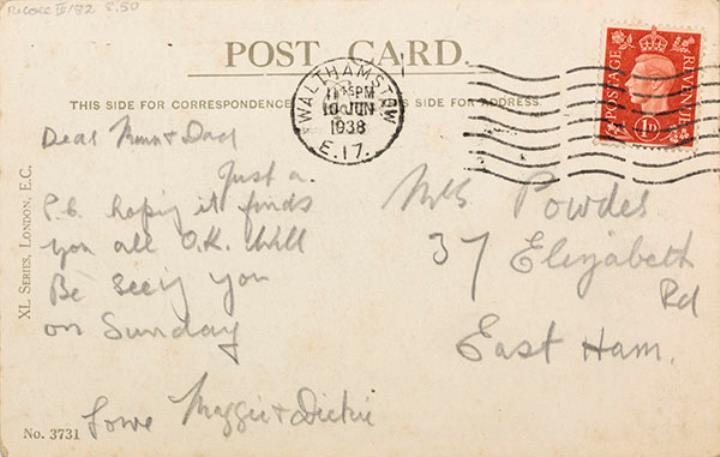 POST CARD
THIS SIDE FOR CORRESPONDENCE
SIDE FOR ADDRESS.
WALTHAMSTOW
PM
10 JUN
1938
E.17.
POSTAGE
REVENUE
1D
Dear Mum & Dad
Just a.
P.C. hoping it finds
you all O.K. Will
Be seeing you
on Sunday
Love Maggie & Dickie
Mrs Powdes
37 Elizabeth
Rd
East Ham.
XL SERIES, LONDON, E.C.
No. 3731
8.50